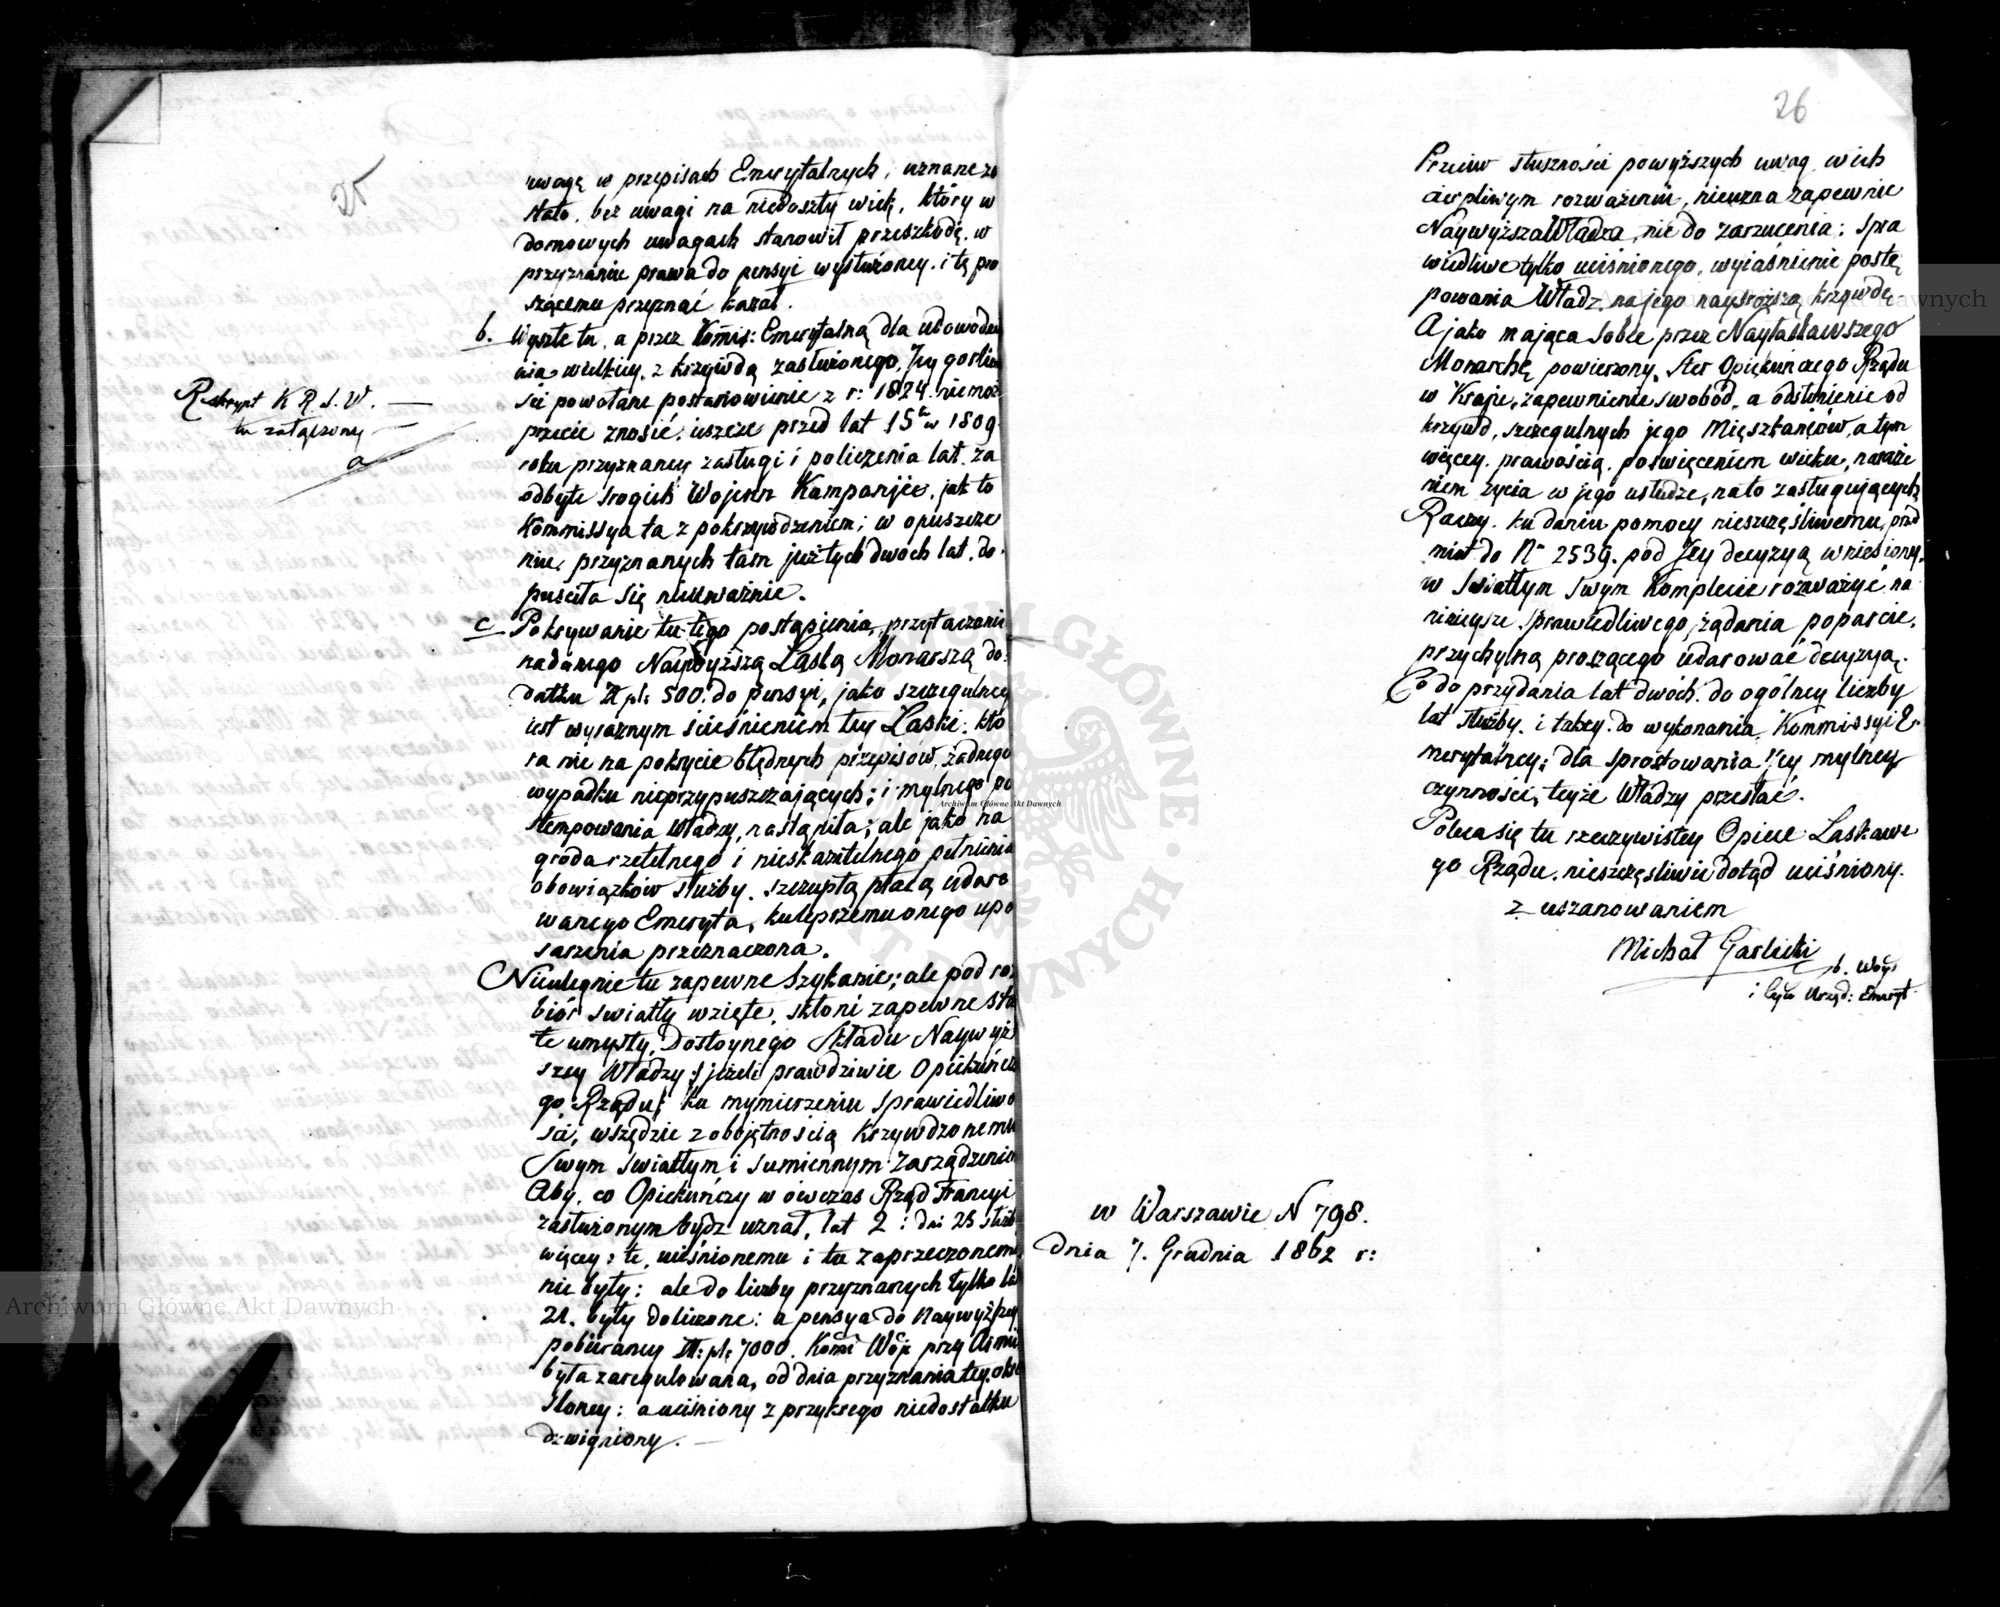 25
uwagę w przepisach Emerytalnych, uznane zo
stało, bez uwagi na niedoszły wiek, który w
domowych uwagach stanowił przeszkodę, w
przyznanie prawa do pensyi wysłużoney, i tę pro
szącemu przyznać kazał.
b. Wyszłe tu, a przez Kom̃is: Emerytalną dla udowodnie
nia wielkiey, z krzywdą zasłużonego, Jey gorliwo
ści powołane postanowienie z r: 1824 niemoże
przecie znosić, ieszcze przed lat 15 w 1809
roku przyznaney zasługi i policzenia lat, za
odbyte srogich Wojenn Kampanjie, jak to
Kommissya ta z pokrzywdzeniem; w opuszcze
niu, przyznanych tam już tych dwóch lat, do
puściła się nieuważnie.
Reskrypt K R. S. W. —
tu załączony —
a
c Pokrywanie tu tego postąpienia, przytaczanie
nadanego Naywyższą Łaską Monarszą do
datku Złpl: 500. do pensyi, jako szczegulney
iest wyraznym ścieśnieniem tey Łaski: któ
ra nie na pokrycie błędnych przepisów, żadnego
wypadku nieprzypuszczających; i mylnego po
stempowania Władzy, nastąpiła; ale jako na
groda rzetelnego i nieskazitelnego pełnienia
obowiązków służby, szczupłą płacą udaro
wanego Emeryta, ku lepszemu onego upo
sarzenia przeznaczona.
Nieulęgnie tu zapewne Szykanie; ale pod roz
biór swiatły wzięte, skłoni zapewne sta
łe umysły, Dostoynego Składu Naywyż
szey Władzy; jeżeli prawdziwie Opiekuńcze
go Rządu; ku wymierzeniu sprawiedliwo
ści, wszędzie z obojętnością Krzywdzonemu
Swym swiatłym i sumiennym Zarządzeniem
Aby, co Opiekuńczy w ówczas Rząd Francyi
zasłużonym bydz uznał, lat 2 i dni 25 służb
więcey: te, uciśnionemu i tu zaprzeczonemi
nie były: ale do liczby przyznanych tylko lat
21. były doliczone: a pensya do Naywyższey
pobieraney Złpl: 7000. Kom̃ Wój: przy Armii
była zaregulowana, od dnia przyznania tey, okre
sloney: a uciśniony z przykrego niedostatku
dzwigniony. —
26
Przeciw słuszności powyższych uwag w ich
cierpliwym rozważeniu, nieuzna zapewnie
Naywyższa Władza, nic do zarzucenia: Spra
wiedliwe tylko uciśnionego, wyiaśnienie postę
powania Władz, na jego naysroższą krzywdę
A jako mająca Sobie przez Nayłaskawszego
Monarchę powierzony, Ster Opiekuńczego Rządu
w Kraju, zapewnienie swobód, a odsłonienie od
krzywd, szczegulnych jego Mięszkańców, a tym
więcey, prawością, poświęceniem wieku, naraże
niem życia w jego usłudze, na to zasługujących
Raczy, ku daniu pomocy nieszczęśliwemu, przed
miot do No 2539. pod Jey decyzyą wniesiony,
w Swiatłym Swym Komplecie rozważyć na
nieieysze, sprawiedliwego żądania poparcie,
przychylną proszącego udarować decyzyą.
Co do przydania lat dwóch do ogólney liczby
lat służby, i takey do wykonania Kommissyi E
merytalney; dla sprostowania Jey mylney
czynności, teyże Władzy przesłać.
Poleca się tu rzeczywistey Opiece Łaskawe
go Rządu, nieszczęsliwie dotąd uciśniony.
z uszanowaniem
Michał Garlicki
b. Woys
i były Urzęd: Emeryt
w Warszawie N 798.
dnia 7. Grudnia 1862 r:
Archiwum Główne Akt Dawnych